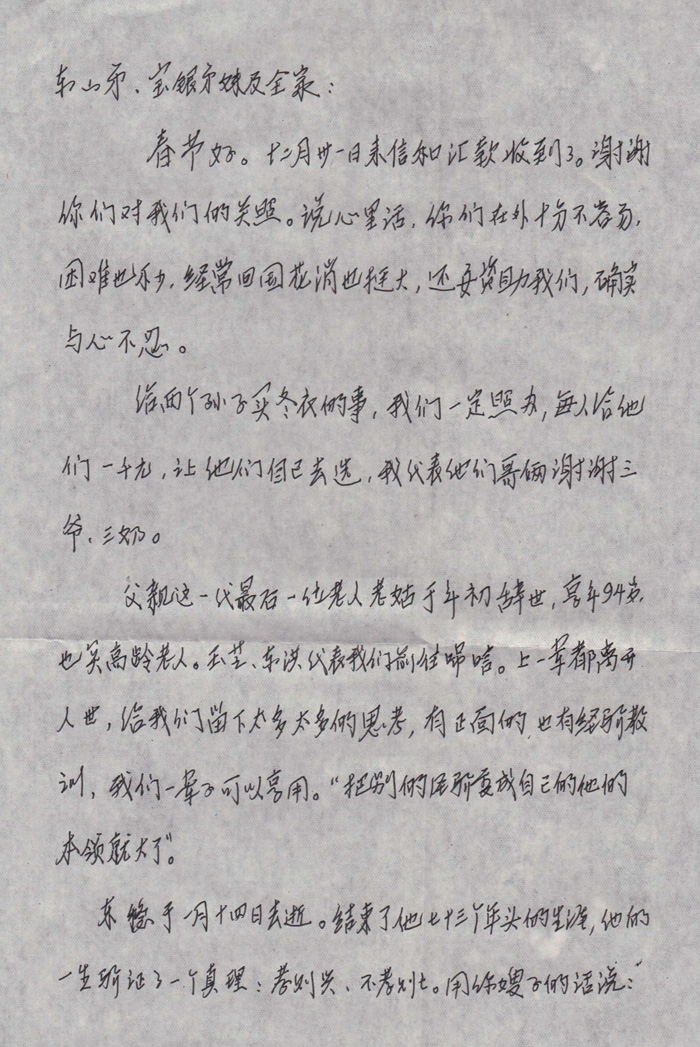 东山弟、宝银弟妹及全家：
春节好。十二月廿一日来信和汇款收到了。谢谢
你们对我们的关照。说心里话，你们在外十分不容易，
困难也不少，经常回国花消也挺大，还要资助我们，确实
与心不忍。
给两个孙子买冬衣的事，我们一定照办，每人给他
们一千元，让他们自己去选，我代表他们哥俩谢谢三
爷、三奶。
父亲这一代最后一位老人老姑于年初辞世，享年94岁，
也实高龄老人。玉芝、东洪代表我们前往吊唁。上一辈都离开
人世，给我们留下太多太多的思考，有正面的，也有经验教
训，我们一辈子可以享用。“把别的经验变成自己的他的
本领就大了”。
东 于一月十四日去逝。结束了他七十三个年头的生涯，他的
一生验证了一个真理：孝则兴、不孝则亡。用你嫂子的话说：“